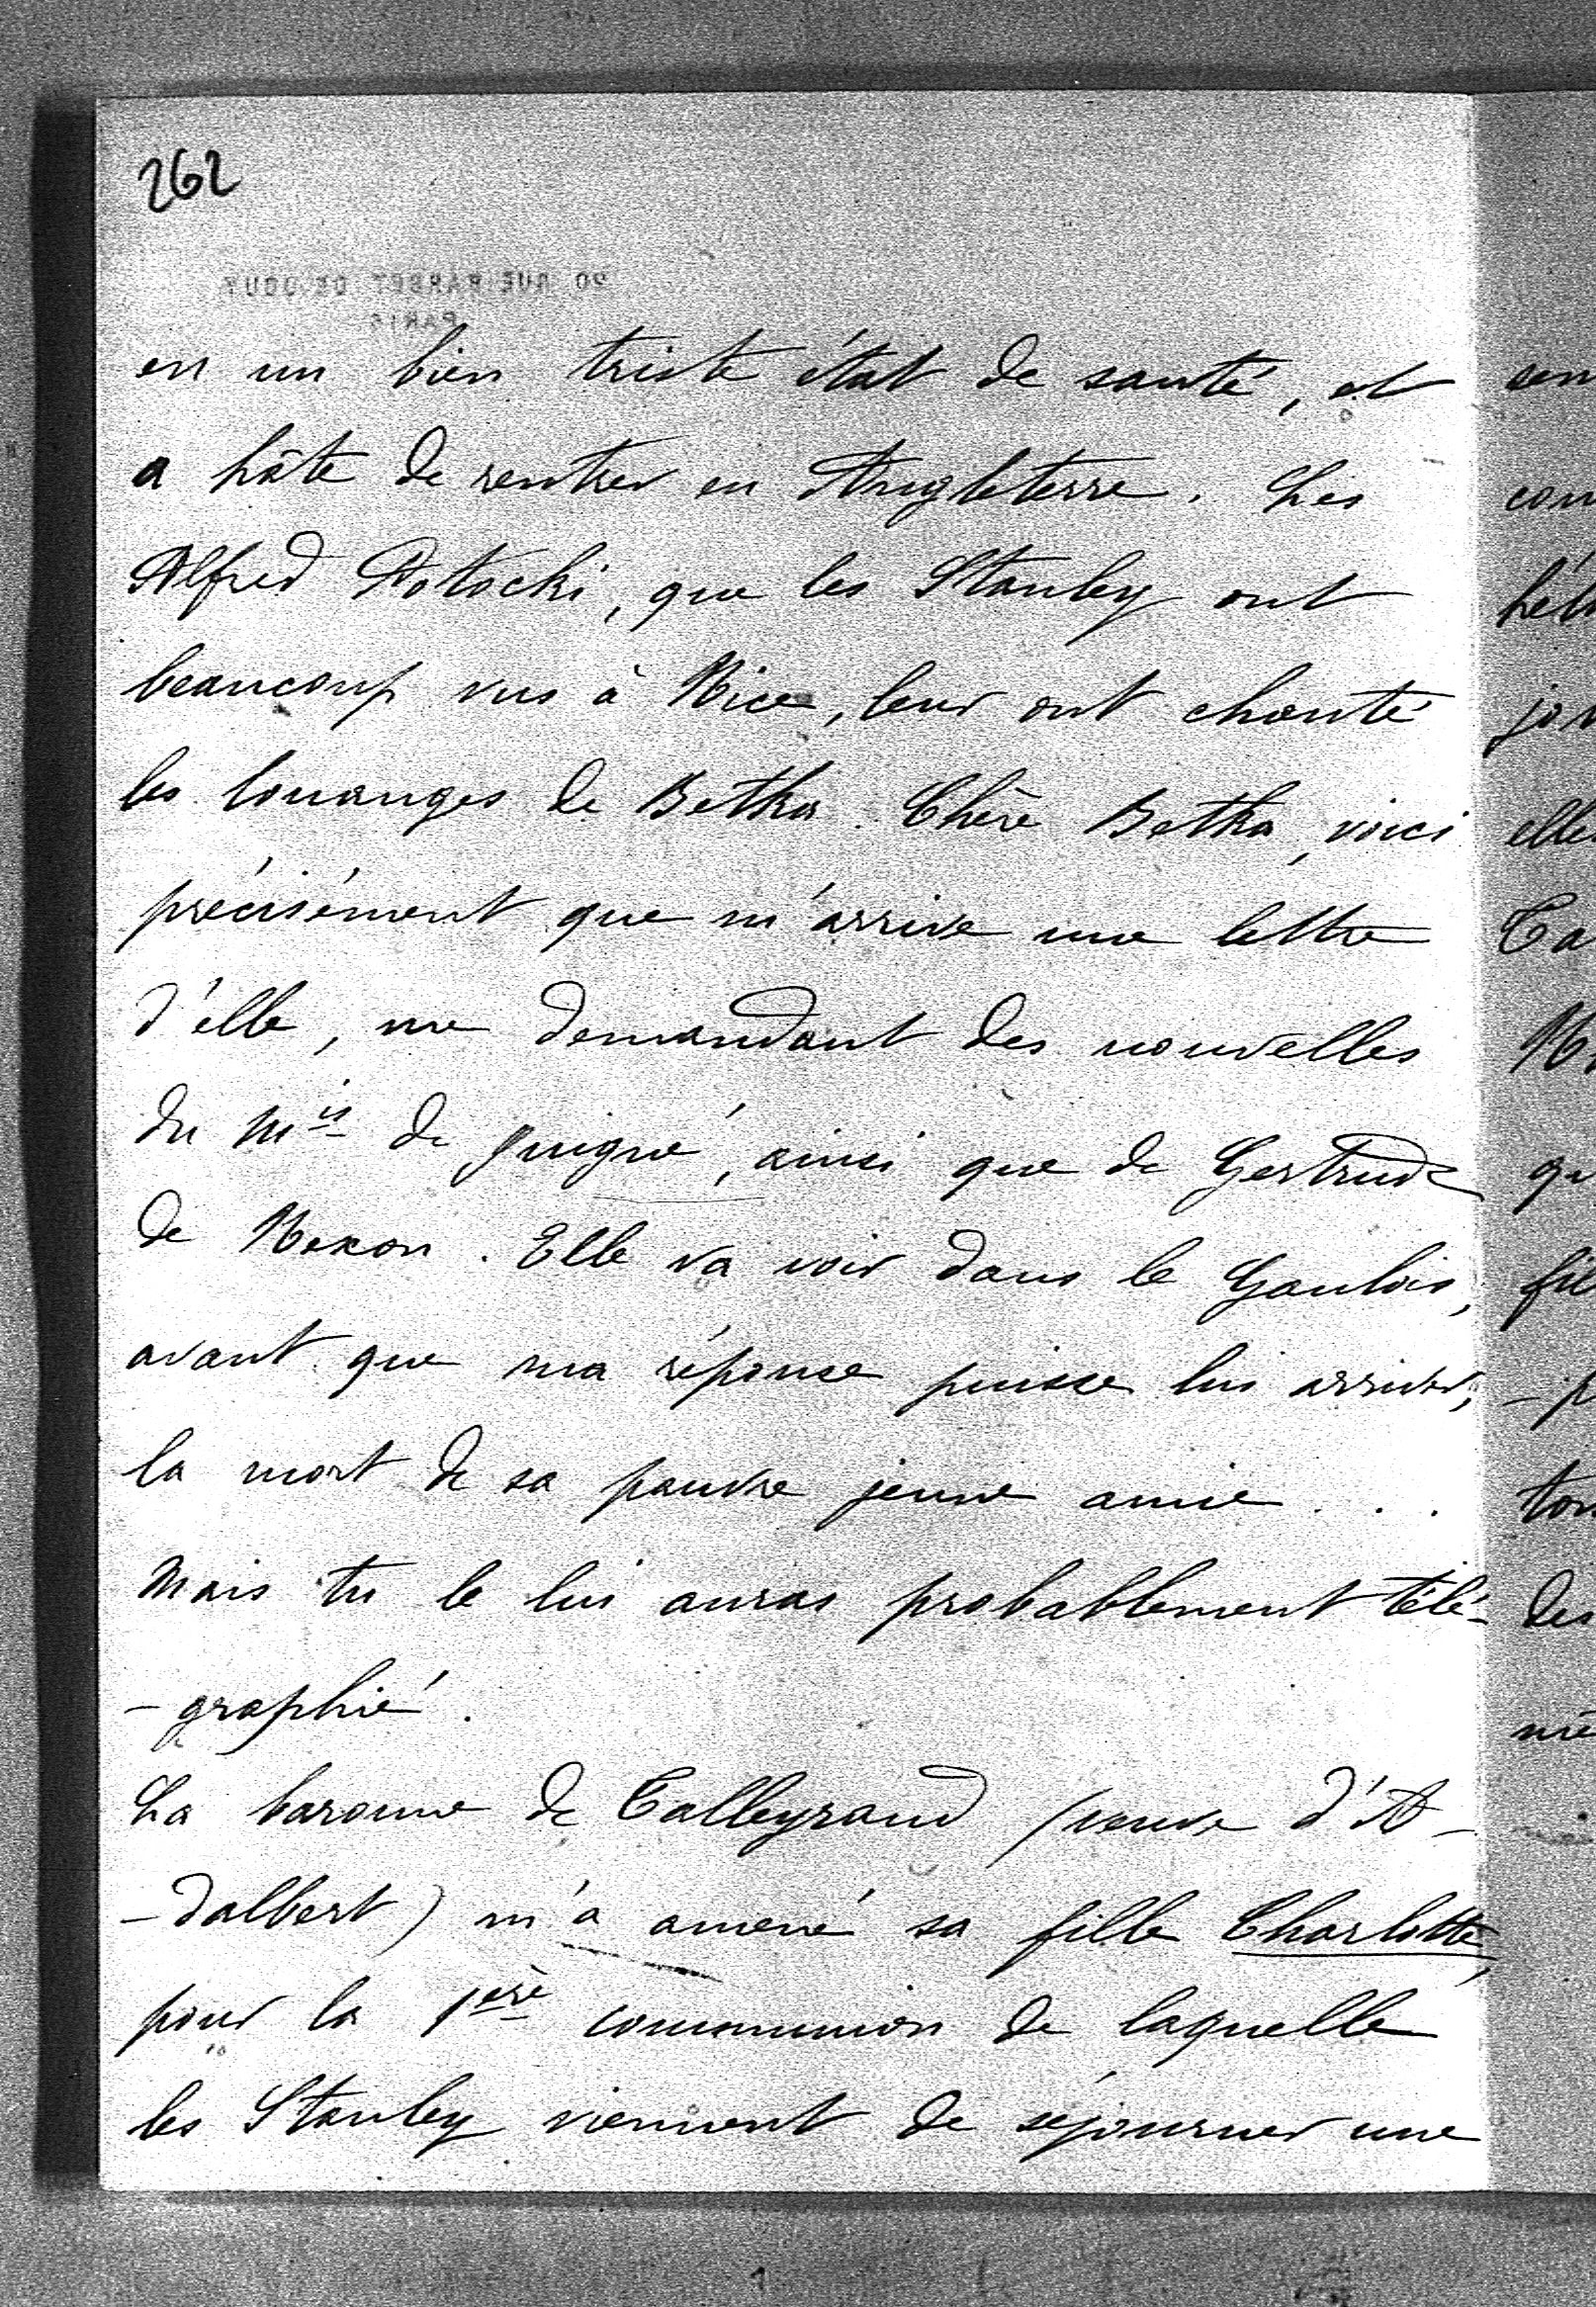 262
90 RUE BARBET DE JOUY
PARIS
en un bien triste état de santé, et
a hâte de rentrer en Angleterre. Les
Alfred Potocki, que les Stanley ont
beaucoup vus à Nice, leur ont chanté
les louanges de Betka. Chère Betka, voici
précisément que m'arrive une lettre
d'elle, me demandant des nouvelles
du Mis de Juigné, ainsi que de Gertrude
de Nexon. Elle va voir dans le Gaulois,
avant que ma réponse puisse lui arriver,
la mort de sa pauvre jeune amie . . .
Mais tu le lui auras probablement télé-
-graphié.
La baronne de Talleyrand (veuve d'A-
-dalbert) m'a amené sa fille Charlotte,
pour la 1ère communion de laquelle
les Stanley viennent de séjourner une